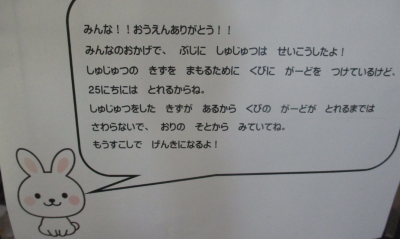 みんな！！おうえんありがとう！！
みんなのおかげで、 ぶじに しゅじゅつは せいこうしたよ！
しゅじゅつの きずを まもるために くびに がーどを つけているけど、
25にちには とれるからね。
しゅじゅつをした きずが あるから くびの がーどが とれるまでは
さわらないで、 おりの そとから みていてね。
もうすこしで げんきになるよ！